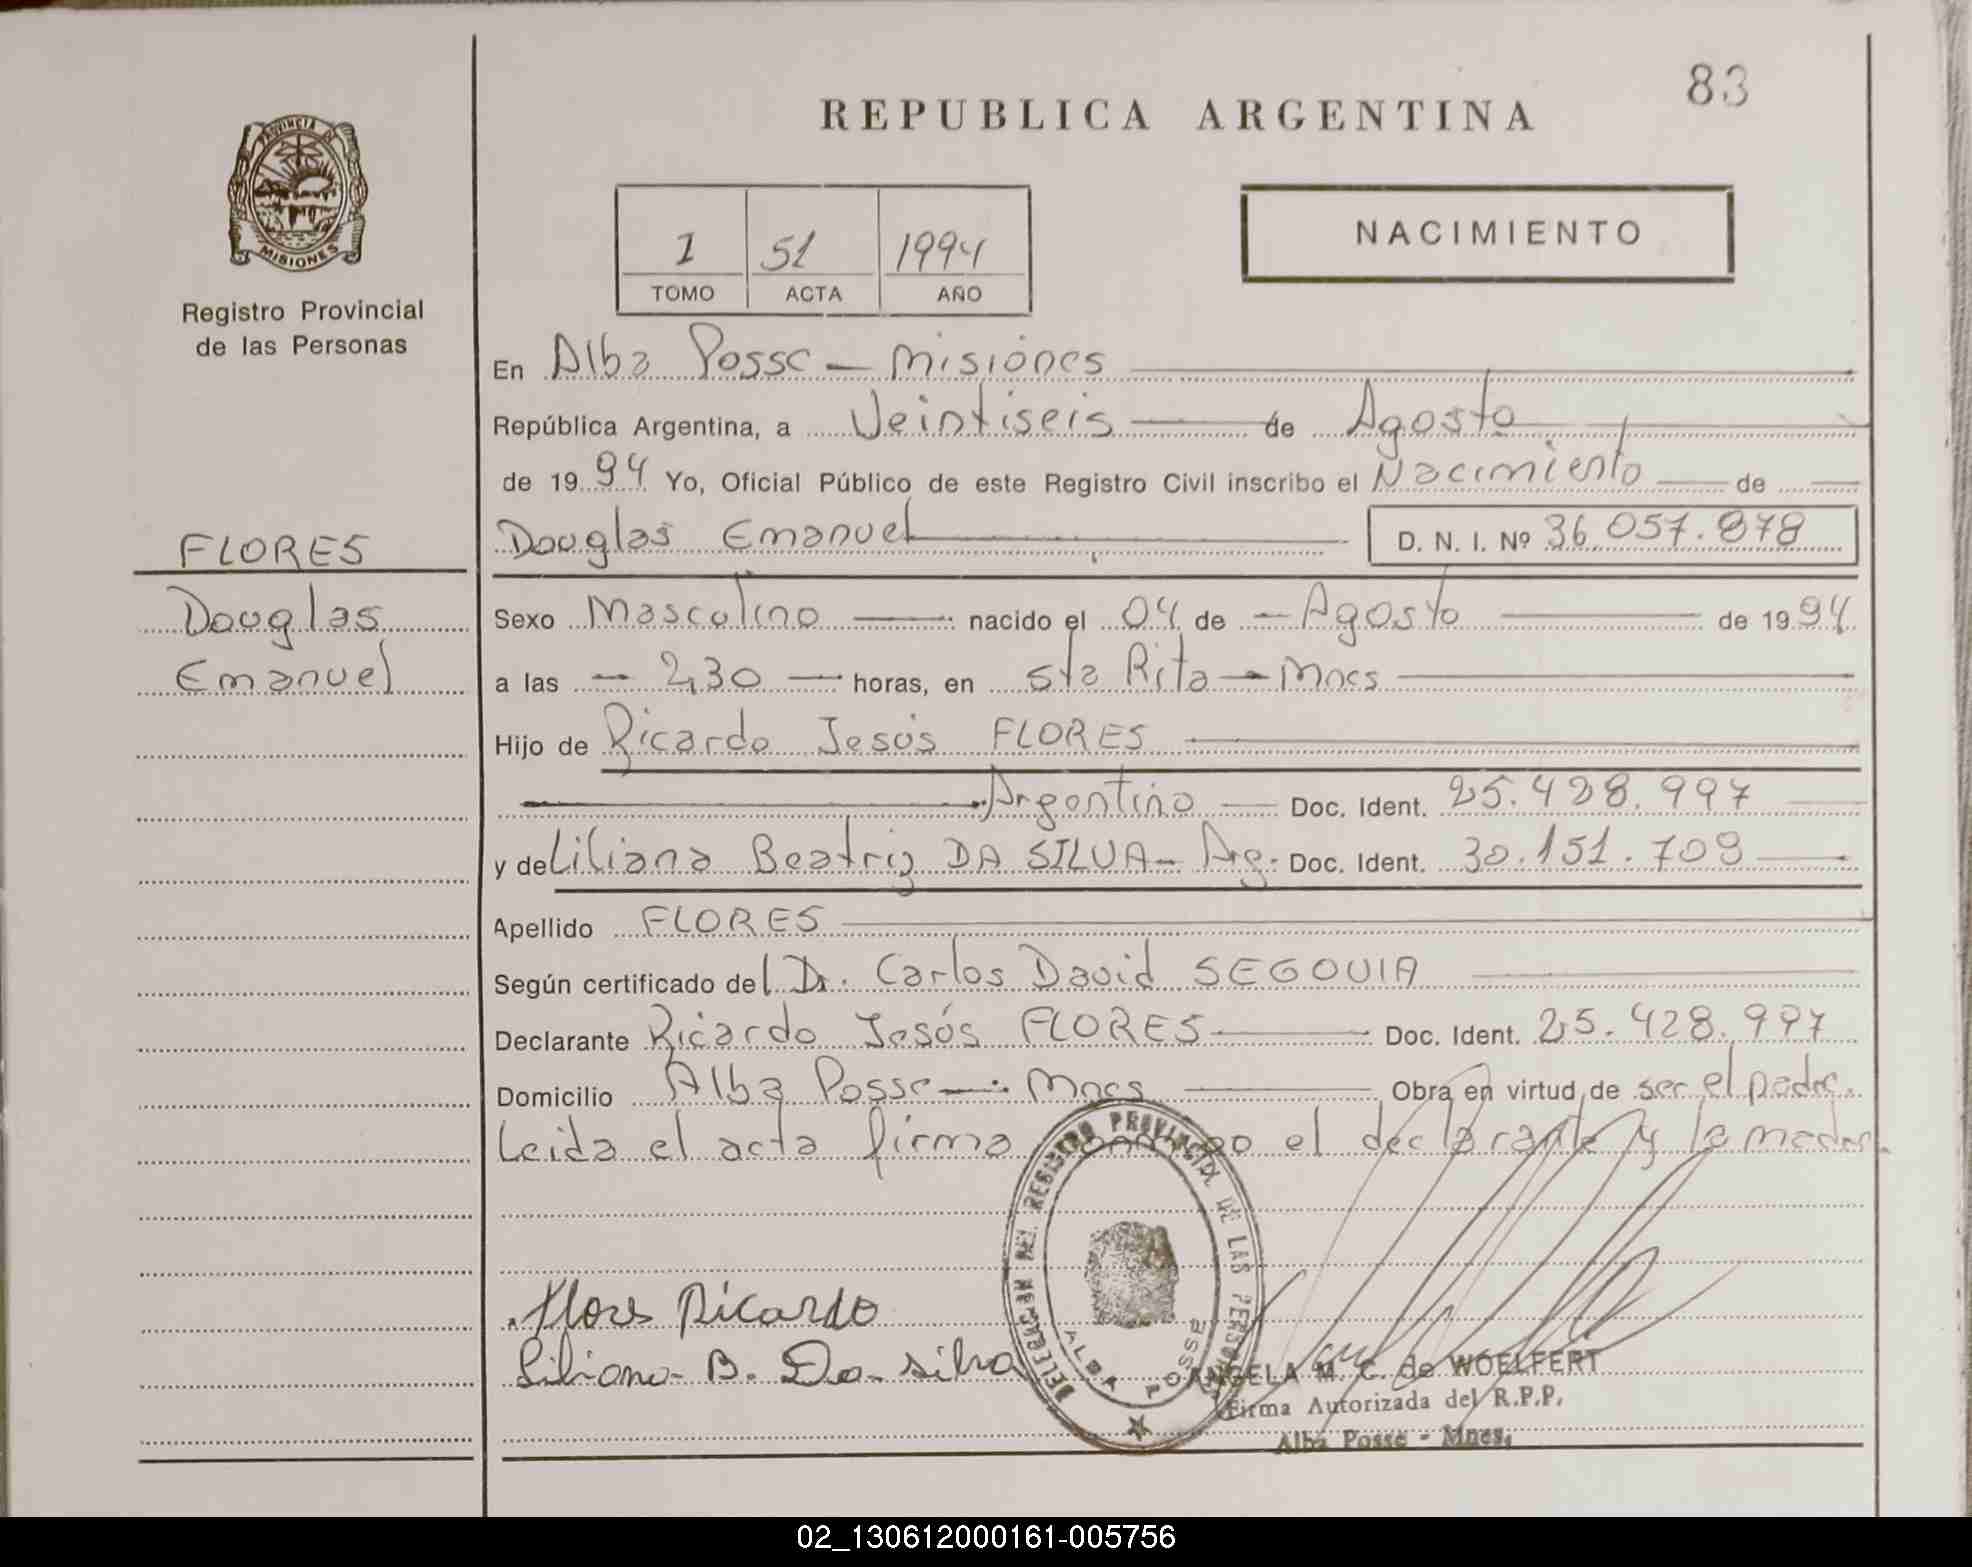 83
REPUBLICA ARGENTINA
PROVINCIA DE
MISIONES
Registro Provincial
de las Personas
NACIMIENTO
1 51 1994
TOMO ACTA AÑO
En Alba Posse - Misiones
República Argentina, a Veintiseis de Agosto
de 1994 Yo, Oficial Público de este Registro Civil inscribo el Nacimiento de
FLORES
Douglas Emanuel D. N. I. Nº 36.057.878
Douglas
Emanuel
Sexo Masculino nacido el 04 de - Agosto de 1994
a las - 2,30 - horas, en Sta Rita - Mnes
Hijo de Ricardo Jesús FLORES
Argentino Doc. Ident. 25.428.997
y de Liliana Beatriz DA SILVA - Arg. Doc. Ident. 30.151.709
Apellido FLORES
Según certificado del Dr. Carlos David SEGOVIA
Declarante Ricardo Jesús FLORES Doc. Ident. 25.428.997
Domicilio Alba Posse - Mnes Obra en virtud de ser el padre.
Leida el acta firma conmigo el declarante y la madre.
DELEGACION DEL REGISTRO PROVINCIAL DE LAS PERSONAS
ALBA POSSE
Flores Ricardo
Liliana B. Da silva
ANGELA M. C. de WOELFERT
Firma Autorizada del R.P.P.
Alba Posse - Mnes.
02_130612000161-005756